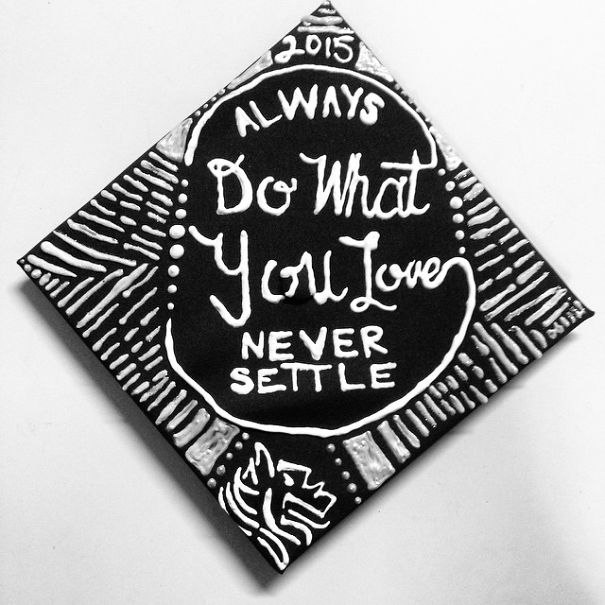 2015
ALWAYS
Do What
You Love
NEVER
SETTLE